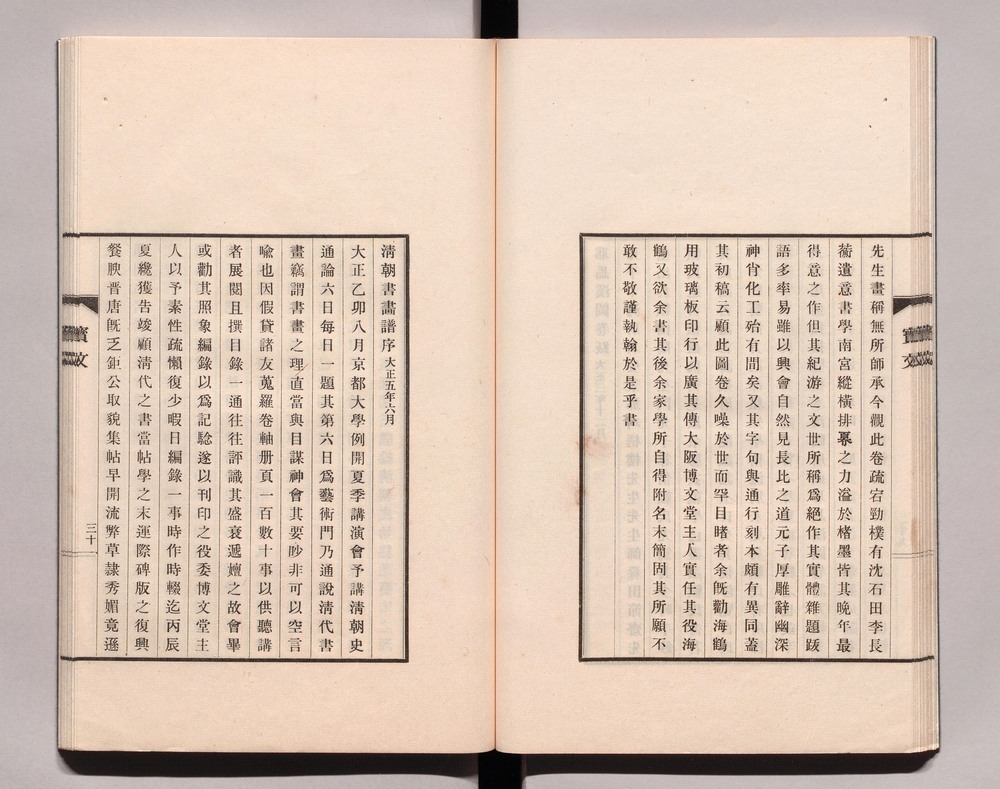 先生畫稱無所師承今觀此卷疏宕勁樸有沈石田李長
蘅遺意書學南宮縱橫排奡之力溢於楮墨皆其晚年最
得意之作但其紀游之文世所稱爲絕作其實體雜題跋
語多率易雖以興會自然見長比之道元子厚雕辭幽深
神肖化工殆有間矣又其字句與通行刻本頗有異同蓋
其初稿云顧此圖卷久噪於世而罕目睹者余旣勸海鶴
用玻璃板印行以廣其傳大阪博文堂主人實任其役海
鶴又欲余書其後余家學所自得附名末簡固其所願不
敢不敬謹執翰於是乎書
清朝書畫譜序大正五年六月
大正乙卯八月京都大學例開夏季講演會予講清朝史
通論六日每日一題其第六日爲藝術門乃通說清代書
畫竊謂書畫之理直當與目謀神會其要眇非可以空言
喩也因假貸諸友蒐羅卷軸册頁一百數十事以供聽講
者展閱且撰目錄一通往往評識其盛衰遞嬗之故會畢
或勸其照象編錄以爲記騐遂以刊印之役委博文堂主
人以予素性疏懶復少暇日編錄一事時作時輟迄丙辰
夏纔獲告竣顧清代之書當帖學之末運際碑版之復興
餐腴晋唐旣乏鉅公取貌集帖早開流弊草隷秀媚竟遜
三十